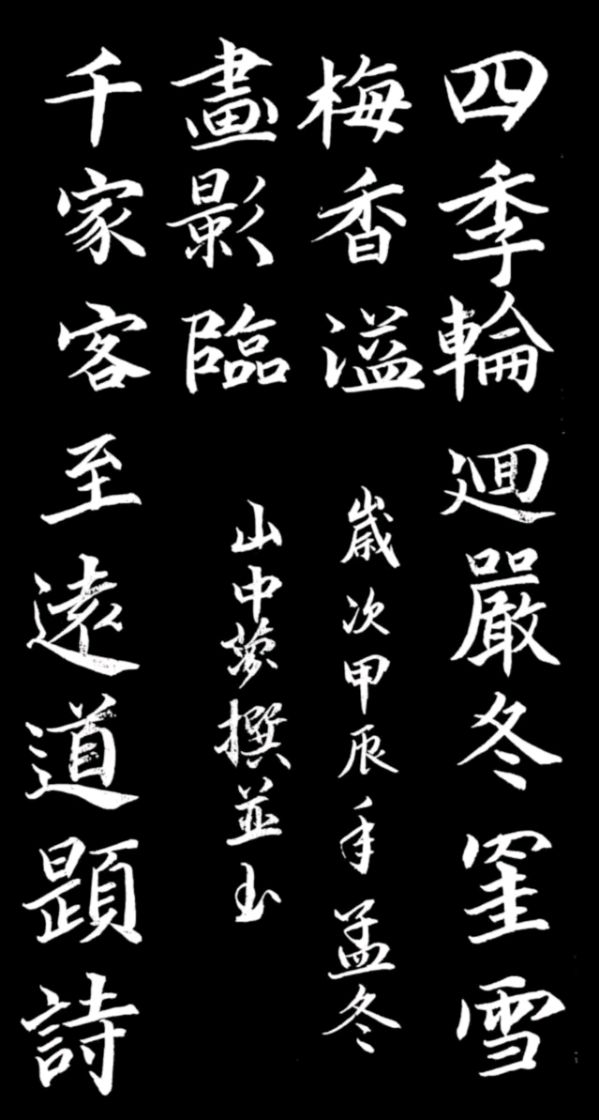 四季輪廻嚴冬罣雪
梅香溢
歲次甲辰年孟冬
千家客至遠道題詩
畫影臨
山中夢撰並書